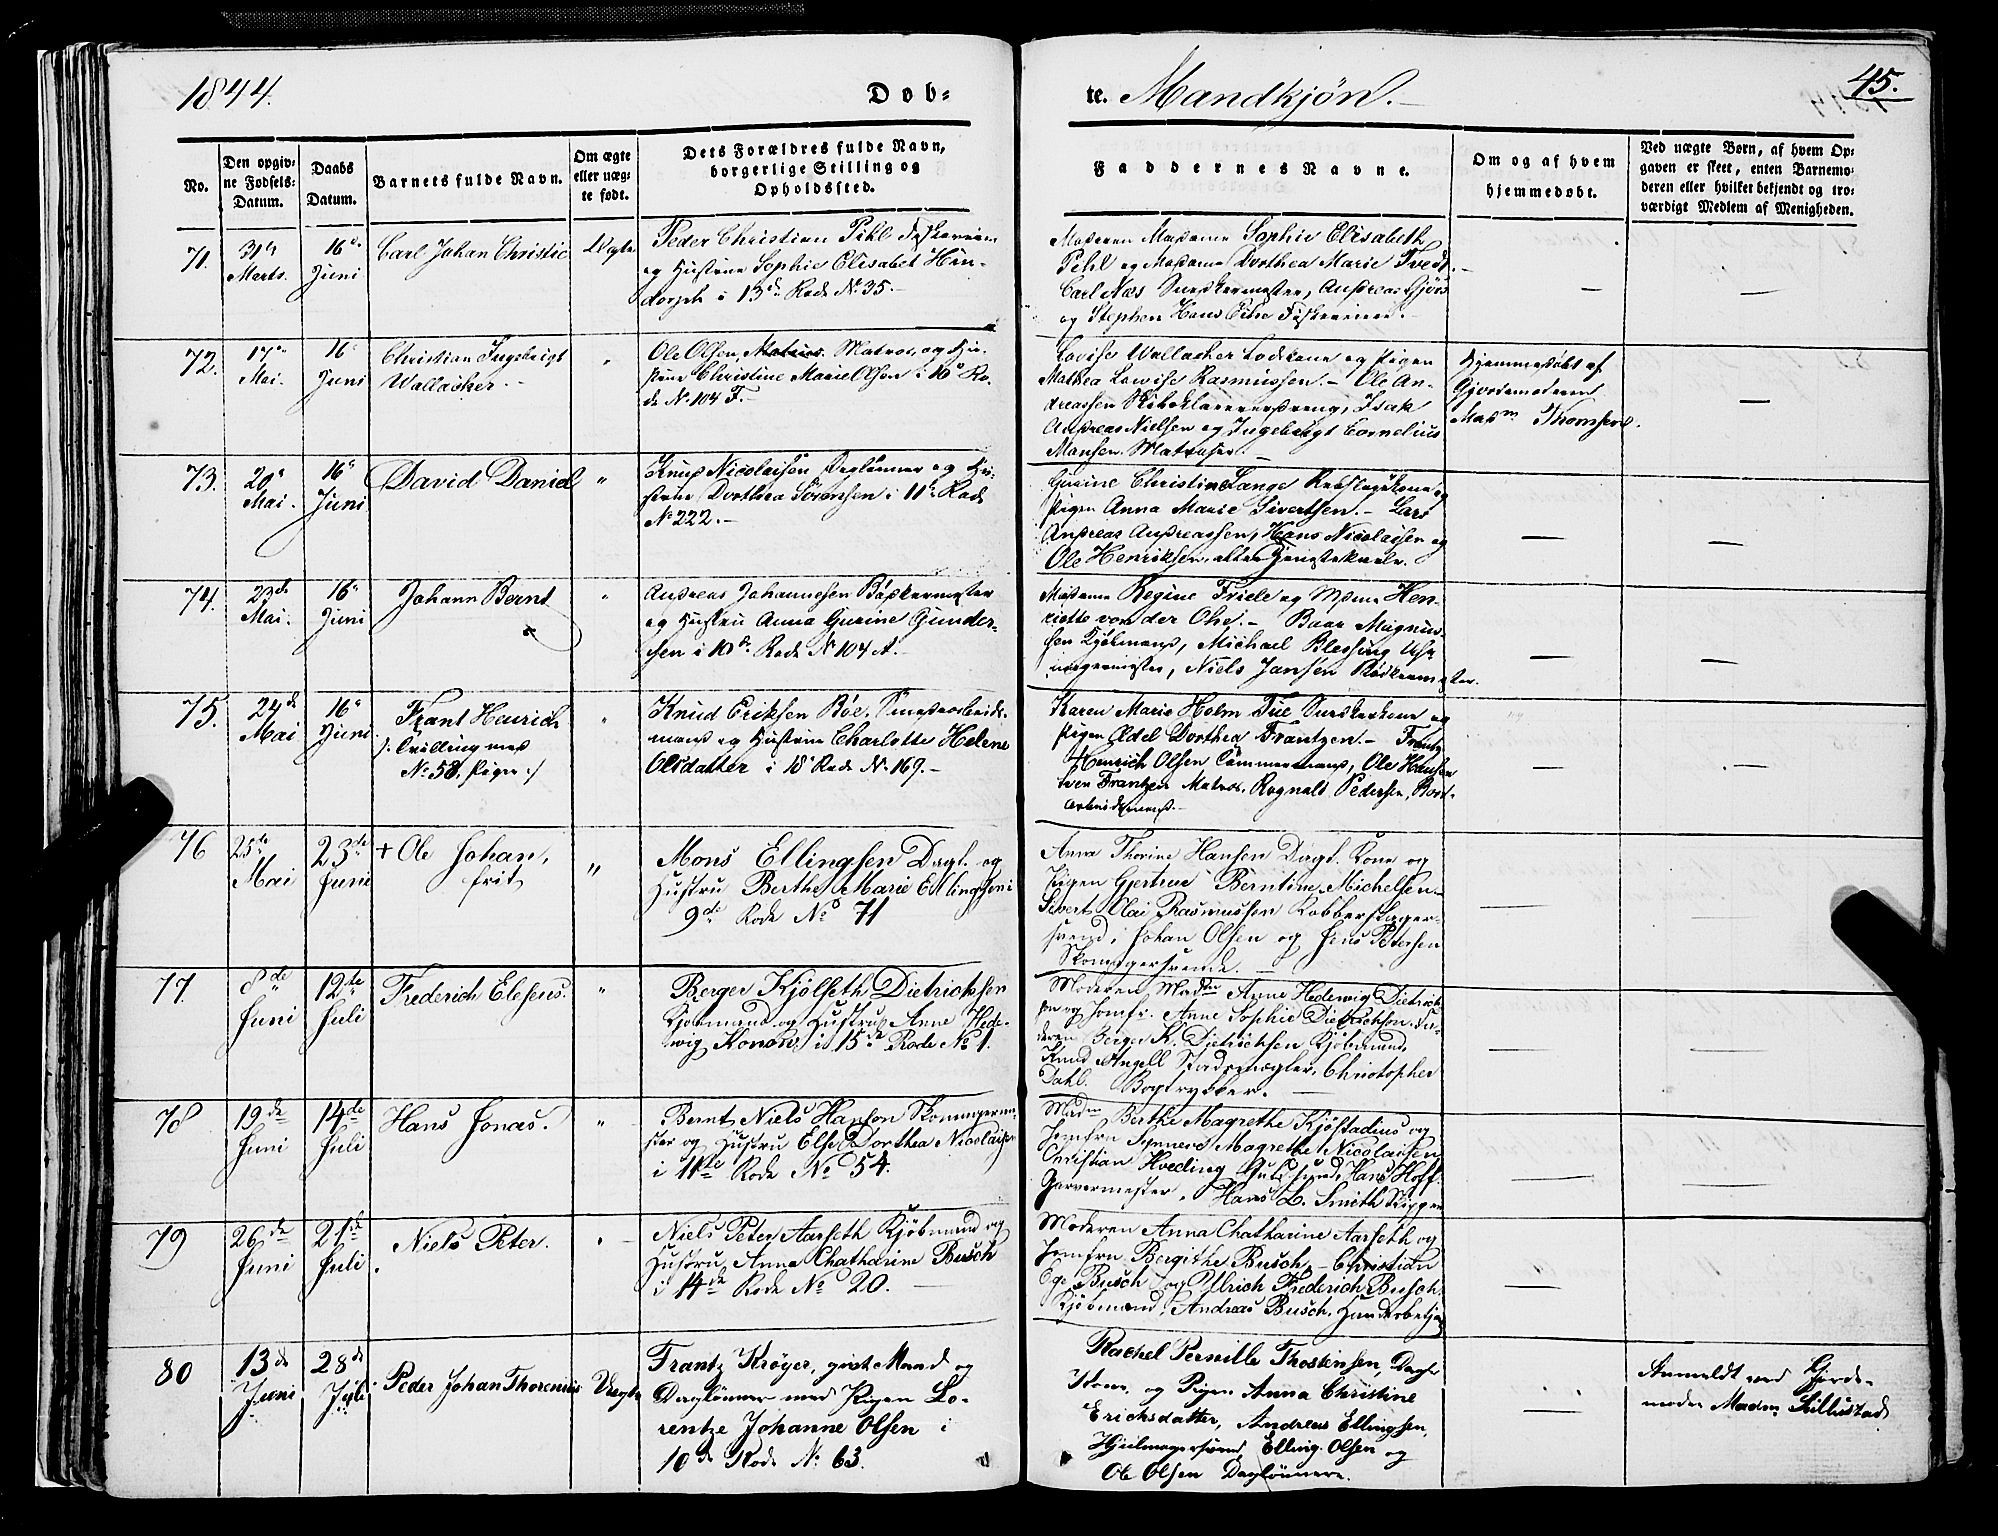 1844.
Døb-
te. Mandkjøn.
45.
No.
Den opgiv-
ne Fødsels-
Datum.
Daabs
Datum.
Barnets fulde Navn.
Om ægte
eller uæg-
te født.
Dets Forældres fulde Navn,
borgerlige Stilling og
Opholdssted.
Faddernes Navne.
Om og af hvem
hjemmedøbt.
Ved uægte Børn, af hvem Op-
gaven er skeet, enten Barnemo-
deren eller hvilket bekjendt og tro-
værdigt Medlem af Menigheden.
71.
31te
Marts.
16de
Juni
Carl Johan Christie
Ægte
Peder Christian Pihl
og Hustrue Sophie Elisabet Hin-
dorph i 13de Rode No 35.
Moderen Madame Sophie Elisabeth
Pihl og Madame Dorthea Marie Tvedt.
Carl Næs Snedkermester, Andreas
og Stephen Hans
72.
17de
Mai.
16de
Juni
Christian Ingebrigt
Wallacker.
"
Ole Olsen, Matros, og Hu-
strue Christine Marie Olsen i 16de Ro-
de No 104 F.
Lovise Wallacker Lodskone og Pigen
Mathea Lowise Rasmussen. Ole An-
dreassen Isak
Andreas Nielsen og Ingebrigt Cornelius
Monsen. Matroser.
Hjemmedøbt af
Gjordemoderen
Madm Thomsen.
73.
20de
Mai.
16de
Juni
David Daniel
"
Knud Nicolaisen Dagl­ønner og Hu-
strue Dorthea Sørensen i 11te Rode
No 222.
Gurine Christine Lange Rebslagerkone og
Pigen Anna Marie Sivertsen. Lars
Andreas Andreassen, Hans Nicolaisen og
Ole Henriksen, alle Tjenestekarle.
74.
23de
Mai.
16de
Juni
Johann Bernt
"
Andreas Johannesen Bødkermester
og Hustru Anna Gurine Gunder-
sen i 10de Rode No 104 A.
Madame Regine Friele og Hen-
riette von der Ohe. Baar Magnus-
sen Kjøbmand, Michael Blessing
Niels Jansen Bødkermester.
75.
24de
Mai
16de
Juni
Frant Henrich
/: Tvilling med
No 58, Piger :/
"
Knud Eriksen Bøe,
mand og Hustrue Charlotte Helene
Olsdatter i 18de Rode No 169.
Karen Marie Holm Snedkerkone og
Pigen Adel Dorthea Frantzen. Frantz
Henrich Olsen Tømmermand, Ole Hansen
Sven Frantzen Matros. Rognald Pedersen,
Arbeidsmand.
76
25de
Mai
23de
Juni
+ Ole Johan,
frit
"
Mons Ellingsen Dagl. og
Hustru Berthe Marie Ellingsen i
9de Rode No 71
Anna Thorine Hansen Dagl. Kone og
Pigen Gjertrue Berntine Michelsen
Sivert Olai Rasmussen Kobberslager-
svend, Johan Olsen og Jens Petersen
Skomagersvende.
77.
8de
Juni
12te
Juli
Frederich Eleseus.
"
Berger Kjølseth Dietrichsen
Kjøbmand og Hustrue Anne Hede-
wig Konow i 15de Rode No 1.
Moderen Madme Anne Hedewig Dietrich-
sen og Jomfr. Anne Sophie Dietrichson. Fa-
deren Berger K. Dietrichsen Kjøbmand,
Knud Angell Stadsmægler, Christopher
Dahl. Bogtrykker.
78
19de
Juni
14de
Juli
Hans Jonas.
"
Bernt Niels Hanson Skomagerme-
ster og Hustru Else Dorthea Nicolaisen
i 11te Rode No 54.
Madm Berthe Magrethe Kjøstadius og
Jomfru Synneve Magrethe Nicolaisen
Christian Hveding Guldsmed, Hans Hoff
Garvermester, Hans L. Smith Skipper
79
26de
Juni
21de
Juli
Niels Peter.
Niels Peter Aarseth Kjøbmand og
Hustru Anna Chatharine Busch
i 14de Rode No 20.
Moderen Anna Chatharine Aarseth og
Jomfru Bergithe Busch, Christian
Ege Busch og Ulrich Frederich Busch
Kjøbmænd, Andreas Busch,
80
13de
Juni
28de
Juli
Peder Johan Thorenius
Uægte
Frantz Krøyer, gift Mand og
Dagl­ønner med Pigen Lo-
rentze Johanne Olsen i
10de Rode No 63.
Rachel Pernille Thostensen, Dagl.
Kone, og Pigen Anna Christine
Erichsdatter, Andreas Ellingsen,
Hjulmagersvend, Elling Olsen og
Ole Olsen Dagl­ønnere.
Anmeldt ved Gjorde-
moder Madm Sillestad